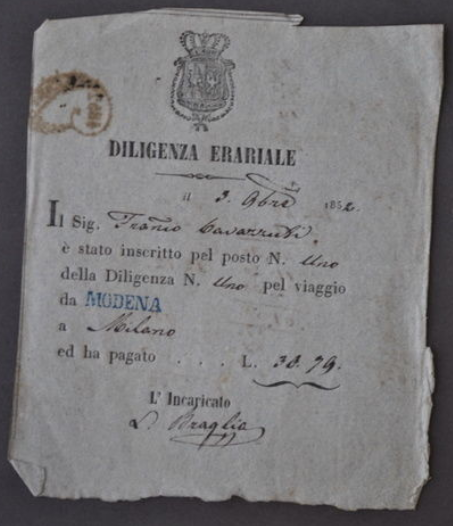 DILIGENZA ERARIALE
a 3. 9bre 1852.
Il Sig. Franco Cavazzuti,
è stato inscritto pel posto N. Uno
della Diligenza N. Uno pel viaggio
da MODENA
a Milano
ed ha pagato . . . L. 38. 79.
L' Incaricato
Braglia